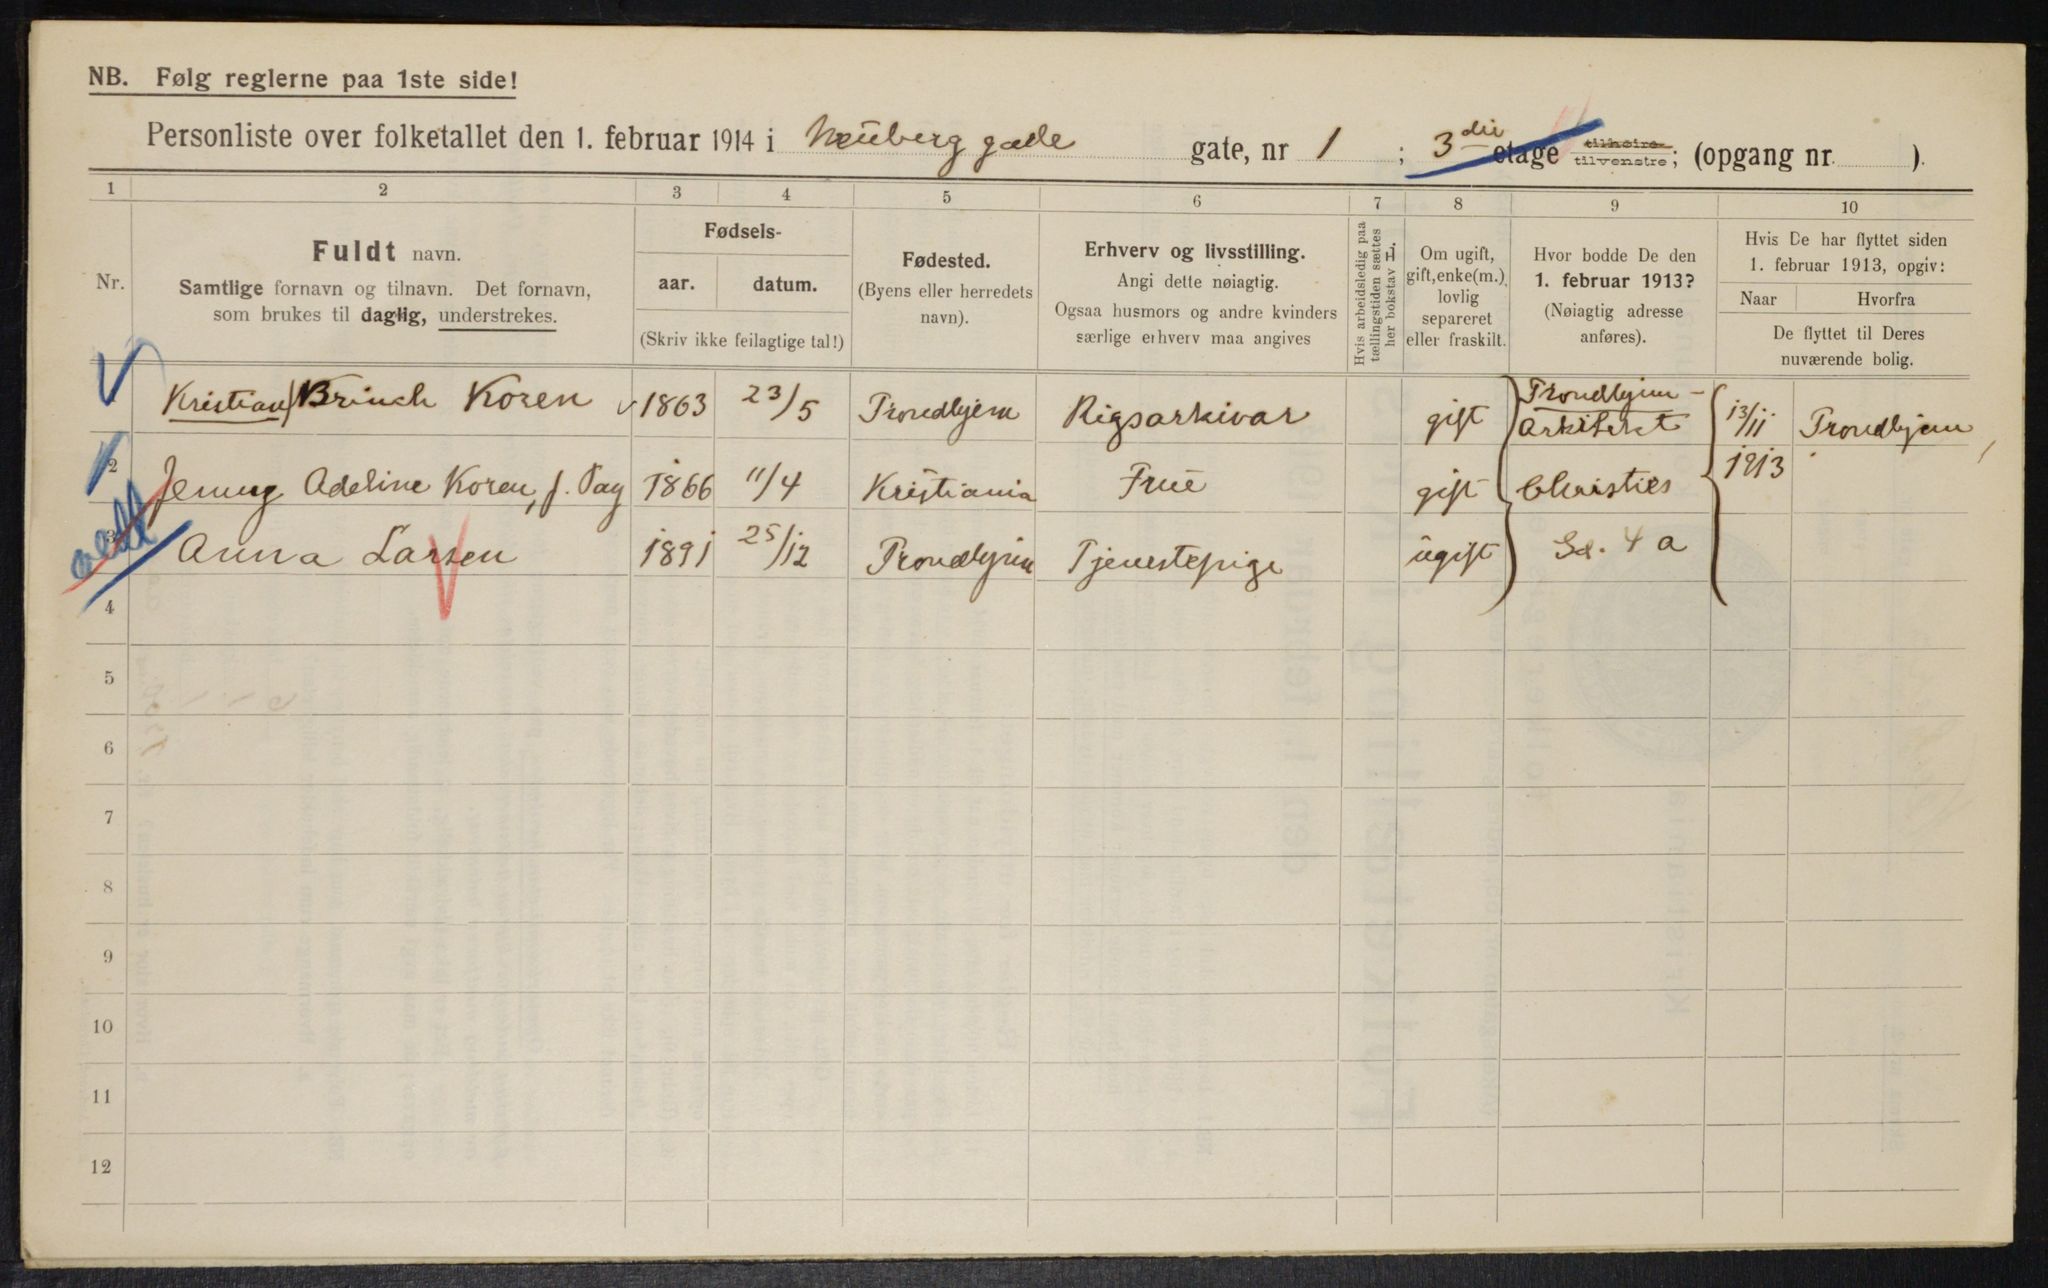 NB. Følg reglerne paa 1ste side!
Personliste over folketallet den 1. februar 1914 i Neuberg gade gate, nr 1 ; 3die etage tilhøire tilvenstre; (opgang nr. ).
1 2 3 4 5 6 7 8 9 10
Nr.
Fuldt navn.
Samtlige fornavn og tilnavn. Det fornavn,
som brukes til daglig, understrekes.
Fødsels-
aar. datum.
(Skriv ikke feilagtige tal!)
Fødested.
(Byens eller herredets
navn).
Erhverv og livsstilling.
Angi dette nøiagtig.
Ogsaa husmors og andre kvinders
særlige erhverv maa angives
Hvis arbeidsledig paa
tællingstiden sættes
her bokstav L.
Om ugift,
gift, enke(m.),
lovlig
separeret
eller fraskilt.
Hvor bodde De den
1. februar 1913?
(Nøiagtig adresse
anføres).
Hvis De har flyttet siden
1. februar 1913, opgiv:
Naar Hvorfra
De flyttet til Deres
nuværende bolig.
Kristian Brinch Koren 1863 23/5 Trondhjem Rigsarkivar gift Trondhjem - Arkitekt 13/11 Trondhjem
2 Jenny Adeline Koren, f. 1866 11/4 Kristiania Frue gift Christies 1913
3 Anna Larsen 1891 25/12 Trondhjem Tjenestepige ugift Gd. 4 a
4
5
6
7
8
9
10
11
12